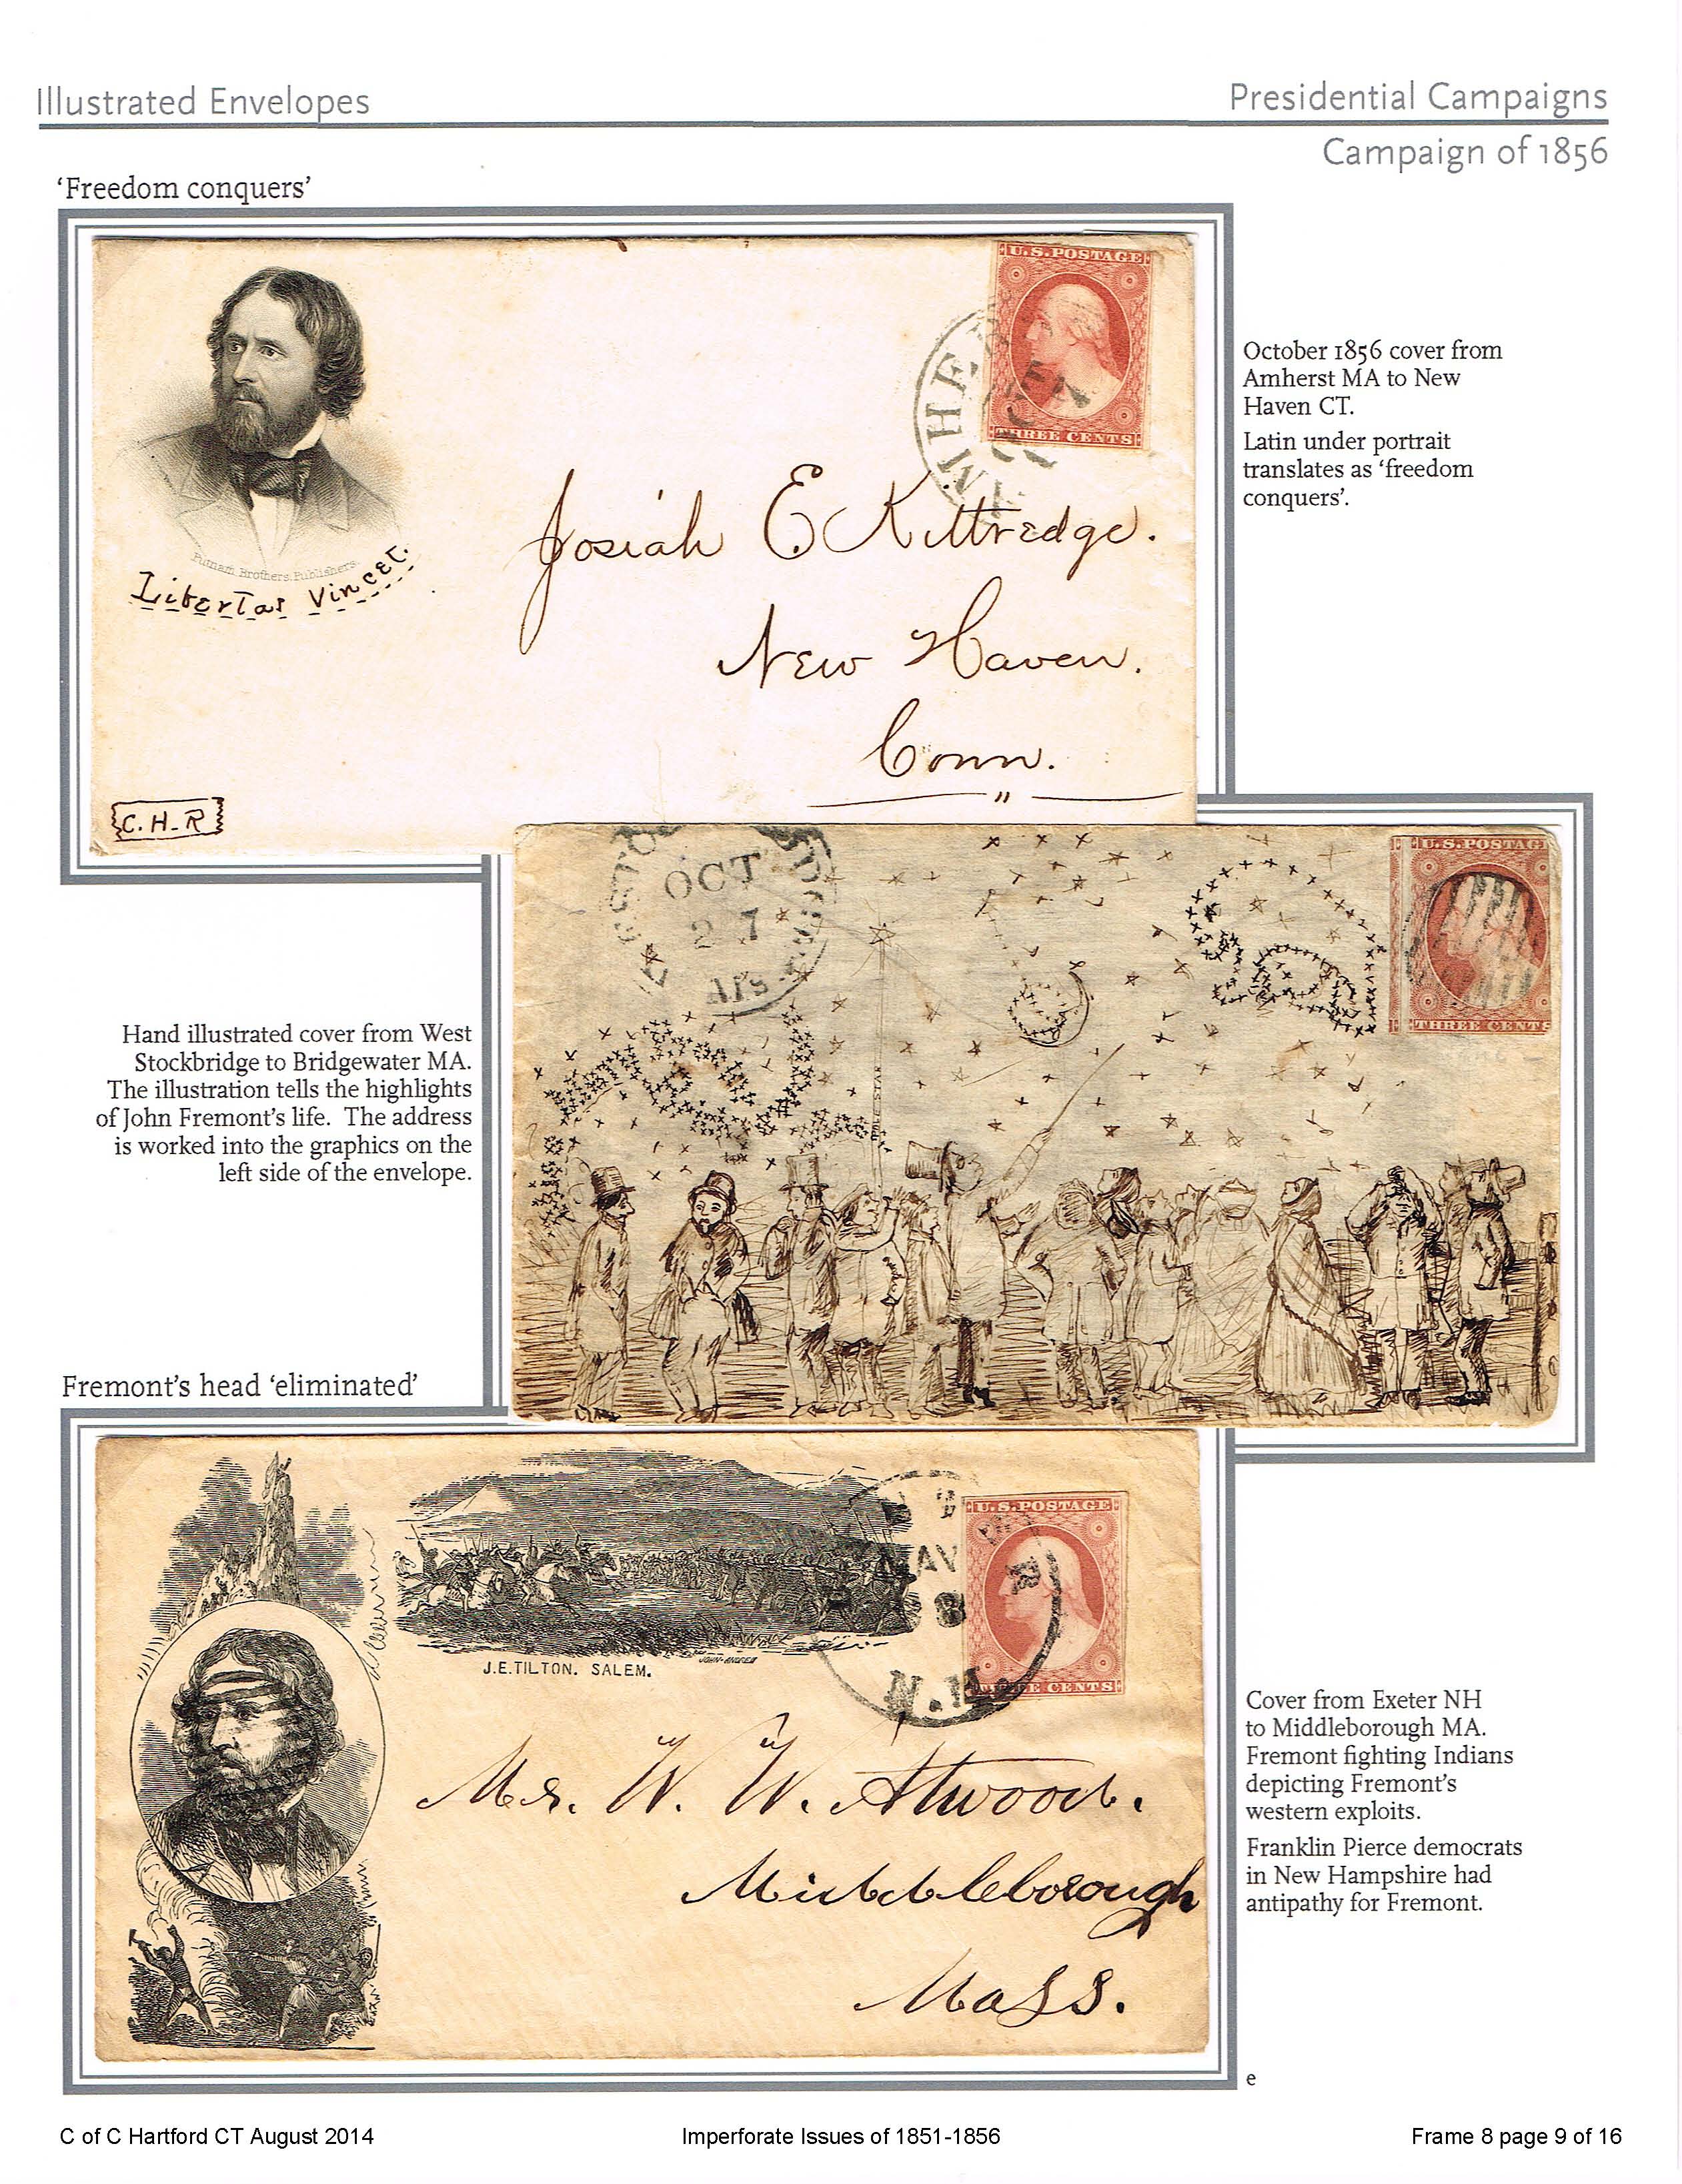 Illustrated Envelopes
Presidential Campaigns
Campaign of 1856
‘Freedom conquers’
U.S. POSTAGE
THREE CENTS
AMHER
Putnam Brothers, Publishers.
Libertas Vincet.
Josiah E Kittredge.
New Haven.
Conn.
C. H. R
October 1856 cover from
Amherst MA to New
Haven CT.
Latin under portrait
translates as ‘freedom
conquers’.
OCT
27
U.S. POSTAG
THREE CENTS
POLE STAR
Hand illustrated cover from West
Stockbridge to Bridgewater MA.
The illustration tells the highlights
of John Fremont’s life. The address
is worked into the graphics on the
left side of the envelope.
Fremont’s head ‘eliminated’
J.E. TILTON. SALEM.
JOHN-ANDREW
U.S. POSTAGE
CENTS
N.H.
Mr. W. W. Atwood.
Middleborough
Mass.
Cover from Exeter NH
to Middleborough MA.
Fremont fighting Indians
depicting Fremont’s
western exploits.
Franklin Pierce democrats
in New Hampshire had
antipathy for Fremont.
e
C of C Hartford CT August 2014
Imperforate Issues of 1851-1856
Frame 8 page 9 of 16